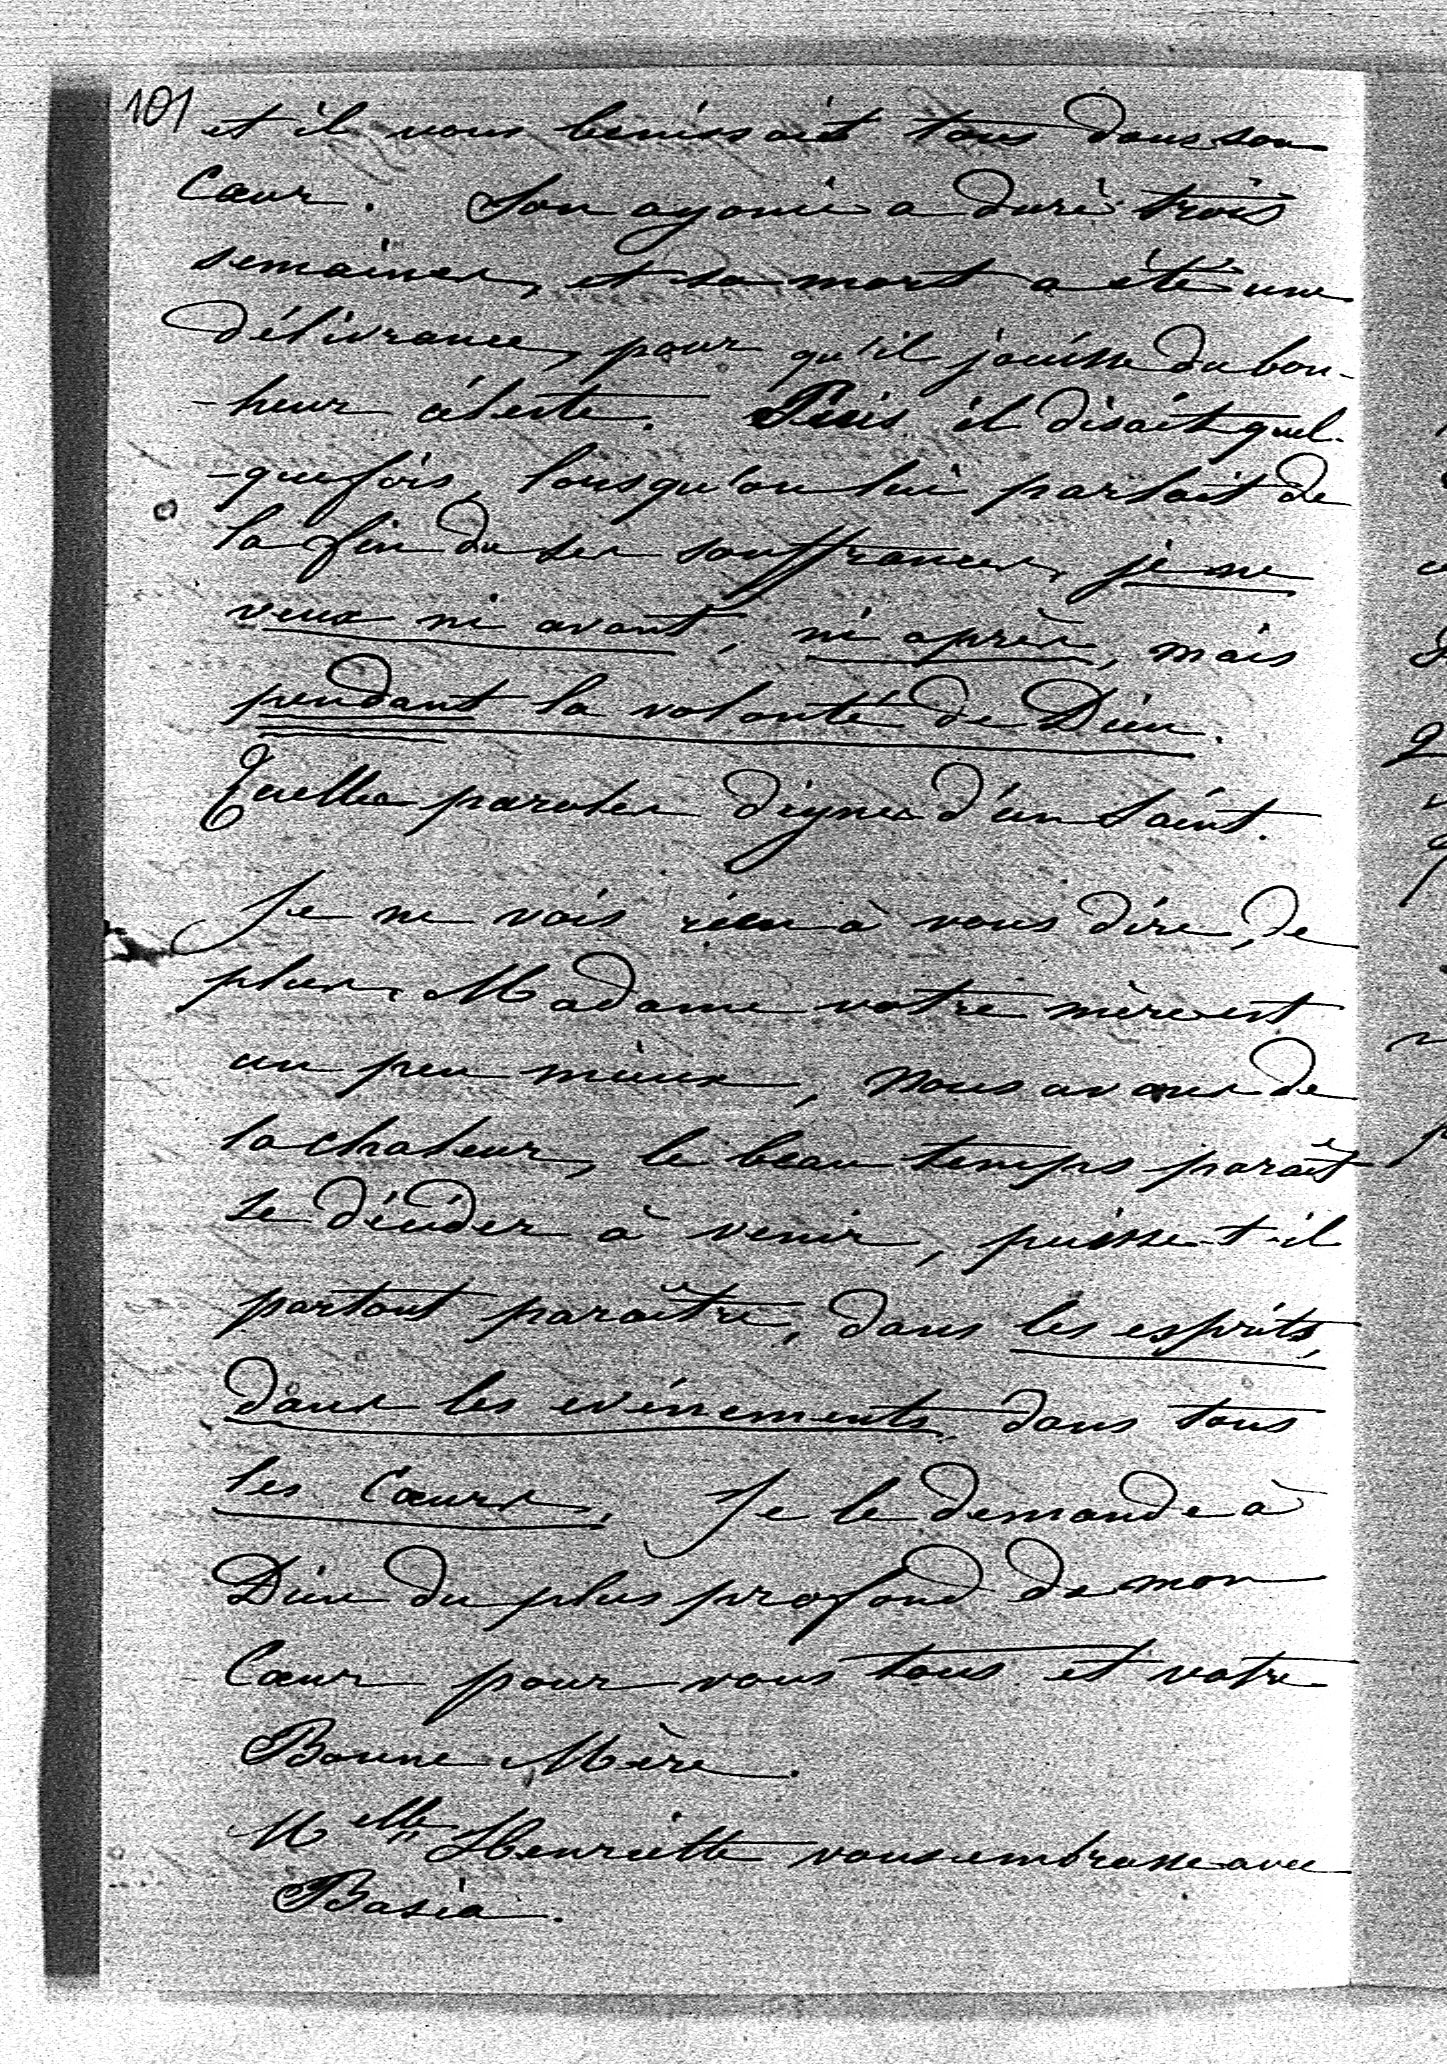 101
et il vous benissait tous dans son
Cœur. Son agonie a duré trois
semaines, et sa mort a été une
délivrance, pour qu'il jouisse du bon-
-heur céleste. Puis il disait quel-
-quefois, lorsqu'on lui parlait de
la fin de ses souffrances, je ne
veux ni avant, ni après, mais
pendant la volonté de Dieu.
Quelles paroles dignes d'un Saint.
Je ne vois rien à vous dire, de
plus. Madame votre mère est
un peu mieux, nous avons de
la chaleur, le beau temps paraît
se décider à venir, puisse-t-il
partout paraître, dans les esprits,
dans les evénements, dans tous
les Cœurs. Je le demande à
Dieu du plus profond de mon
Cœur pour vous tous et votre
Bonne Mère.
Melle Henriette vous embrasse avec
Basia.